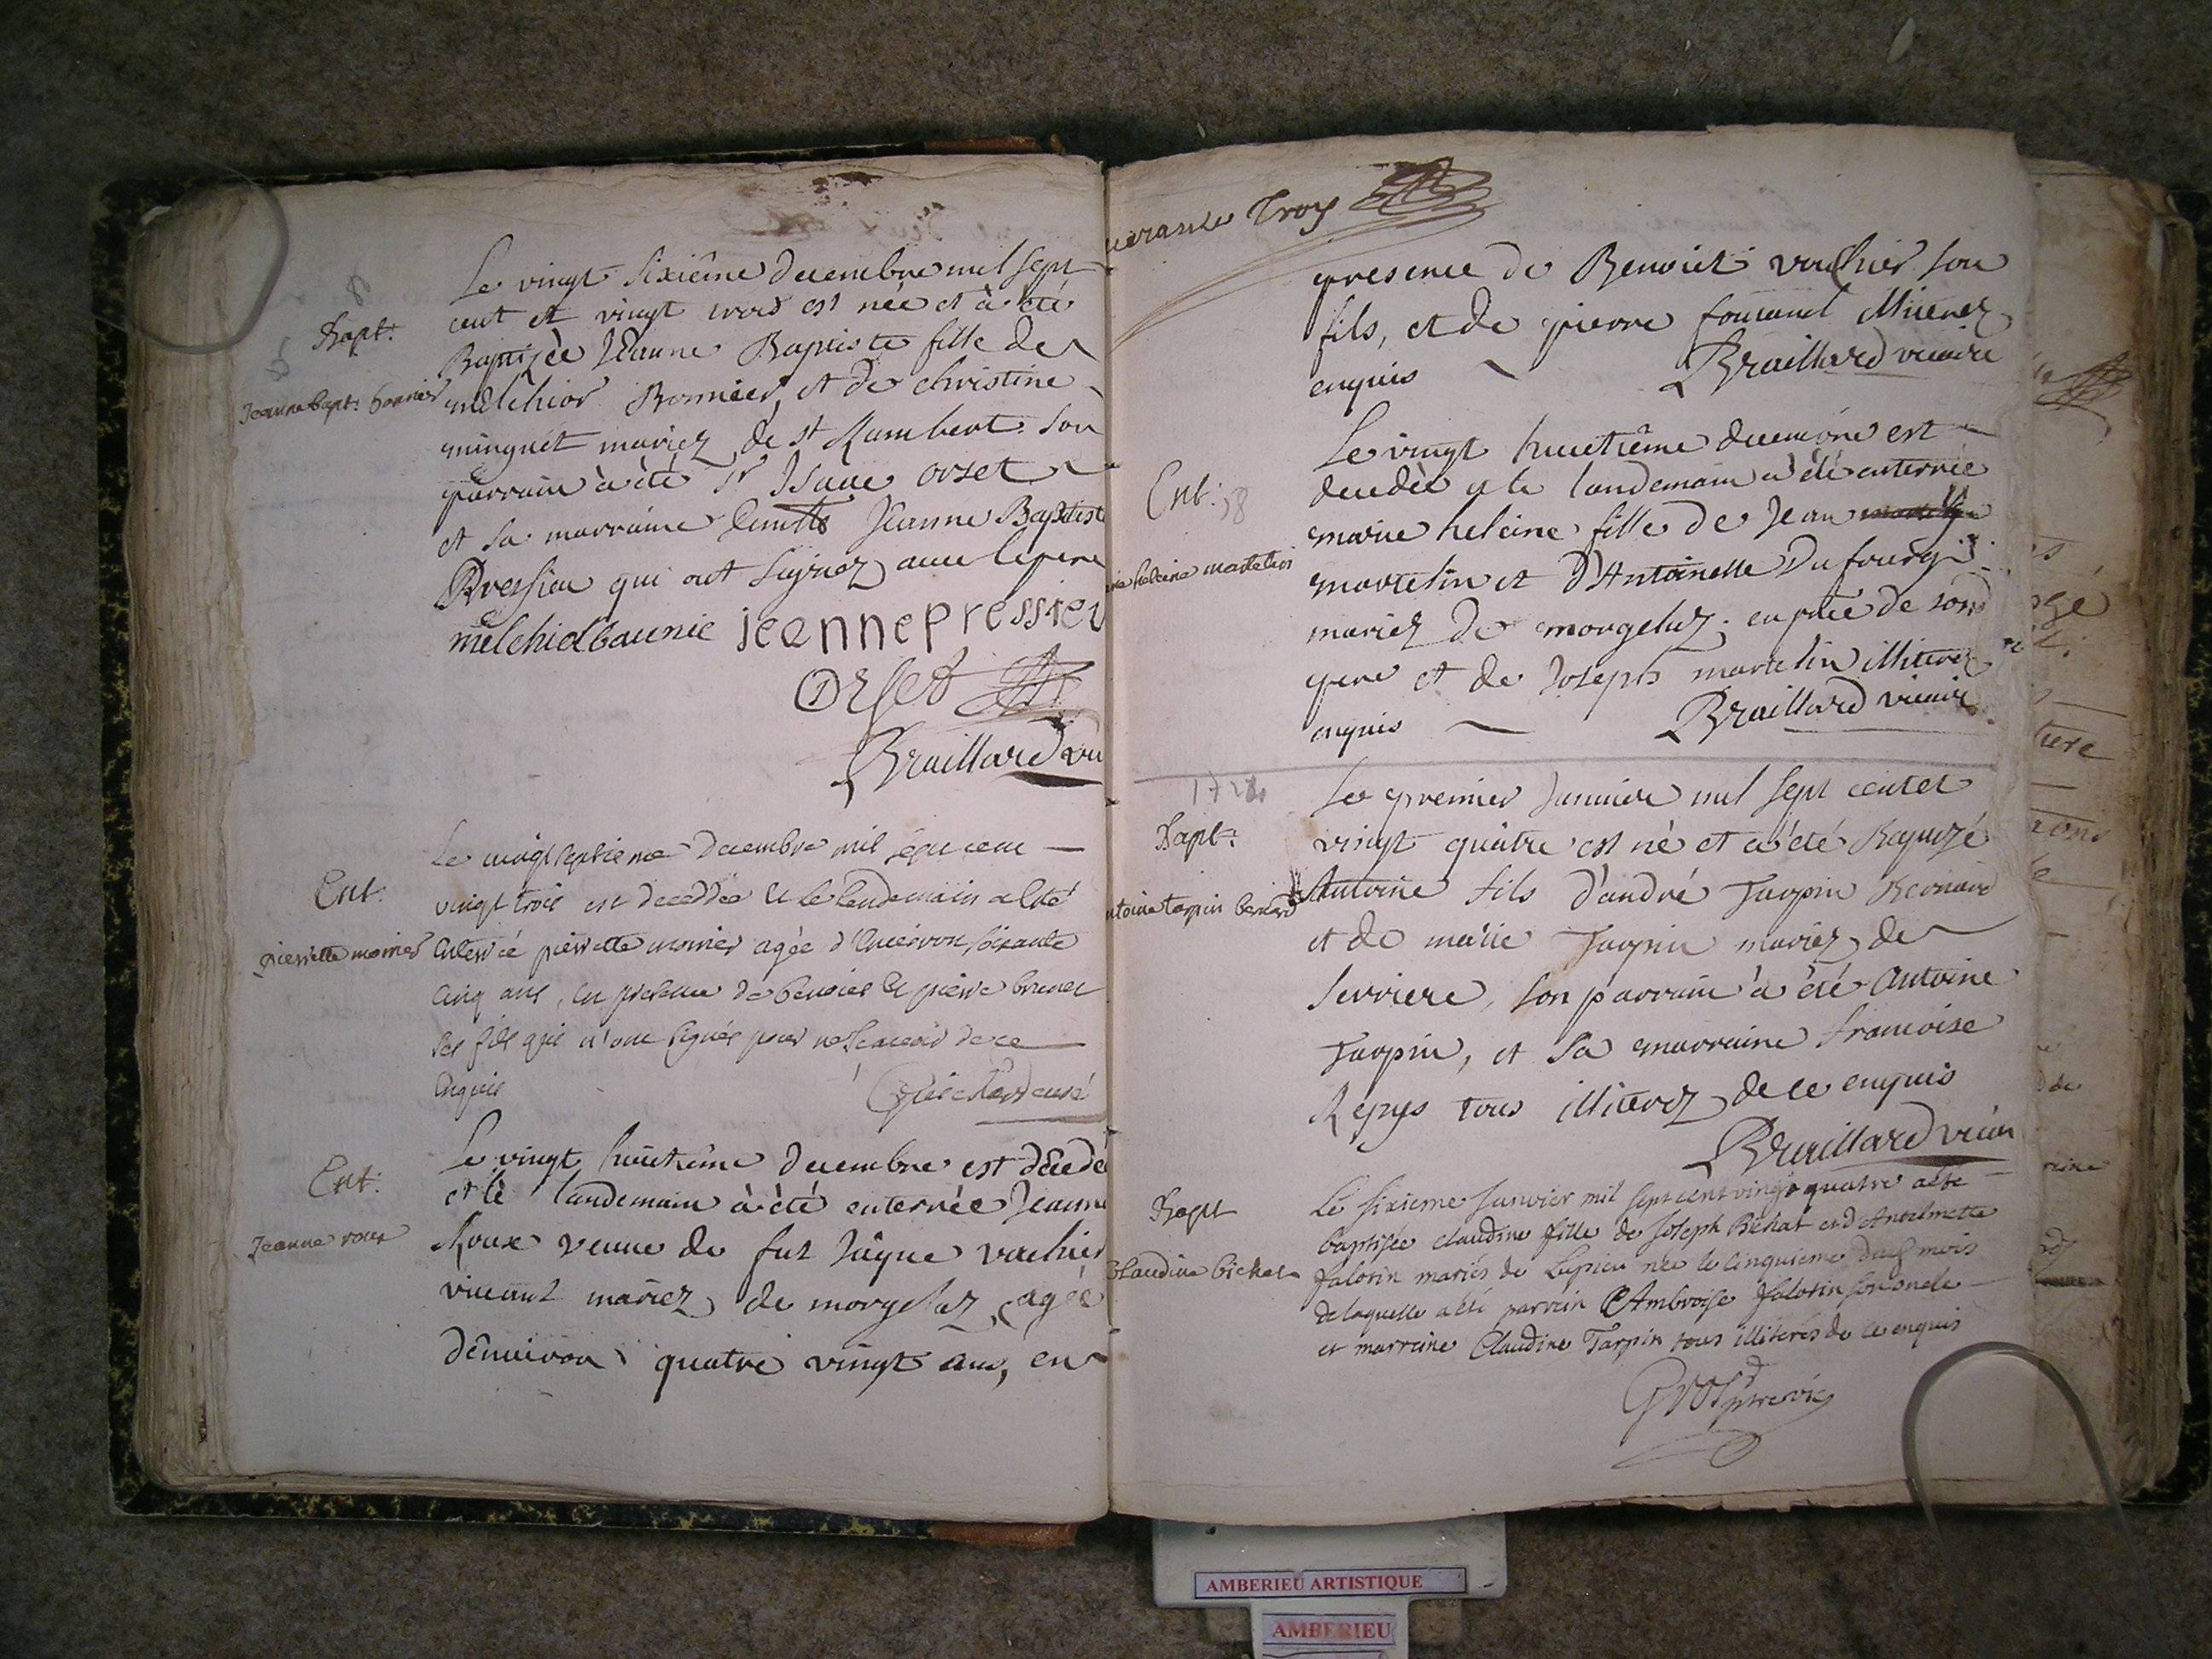 Bapt:
Jeanne bapt: bonnier
Le vingt sixiême decembre mil sept
cent et vingt trois est née et à été
Baptizèe Jeanne Baptiste fille de
melchior Bonnier, et de christine
minguet mariez de st Rambert. son
parrain à été sr Isaac orset
et sa marraine Jeanne Baptiste
Pressieu qui ont signez avec le pere
melchiol baunie jeanne pressieu
Orset
Bruillard vic
Ent.
pierrette monier
Le vingt septieme decembre mil sept cent
vingt trois est decedée et le lendemain a été
enterrée pierrette monier agée d'environ soixante
cinq ans, en presence de benoist et pierre brunet
ses fils qui n'ont signés pour ne scavoir de ce
enquis curé
Ent:
Jeanne roux
Le vingt huitiême decembre est décedé
et le landemain à été enterrée Jeanne
Roux veuve de fut Jaque vachier
vivant mariez de morgelaz, agée
d'environ quatre vingt ans, en
quarante Troy
presence de Benoict vachier son
fils, et de pierre illiterez
enquis Bruillard vicaire
Ent: 58
heleine martelin
Le vingt huictiême decembre est
decedée et le landemain a été enterrée
marie heleine fille de Jean
martelin et d'Antoinette Dufour
mariez de morgelaz; en pnce de son
pere et de Joseph martelin illiterez
enquis Bruillard vicaire
1724
Bapt:
antoine tarpin bernard
Le premier Janvier mil sept cent et
vingt quatre est né et a été Baptizé
Antoine fils d'andré Tarpin Bernard
et de marie Tarpin mariez de
serriere, son parrain à été Antoine
Tarpin, et sa marraine francoise
Repys tous illiterez de ce enquis
Bruillard vicair
Bapt
Claudine bichat
Le sixieme Janvier mil sept cent vingt quatre a été
baptisée claudine fille de Joseph Bichat et d'Antelmette
falotin mariés de Lupieu née le cinquieme dud mois
de laquelle a été parrein Ambroise falotin son oncle
et marraine Claudine Tarpin tous illiterés de ce enquis
Gros ptre vic
AMBERIEU ARTISTIQUE
AMBERIEU